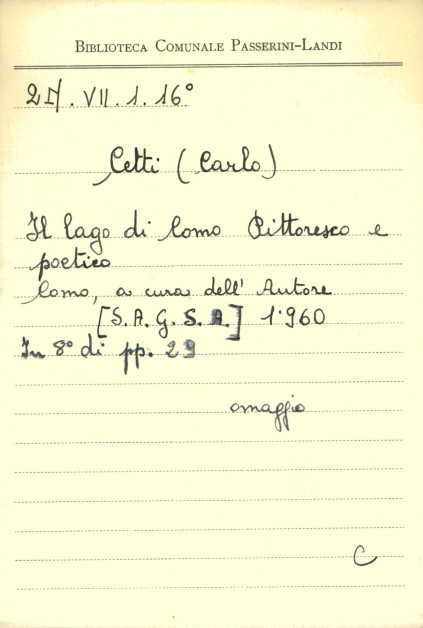 BIBLIOTECA COMUNALE PASSERINI-LANDI
VII. 1. 16°
Cetti (Carlo)
Il lago di Como Pittoresco e
poetico
Como, a cura dell' Autore
[S. A. G. S. A.] 1960
In 8° di pp. 29
omaggio
C